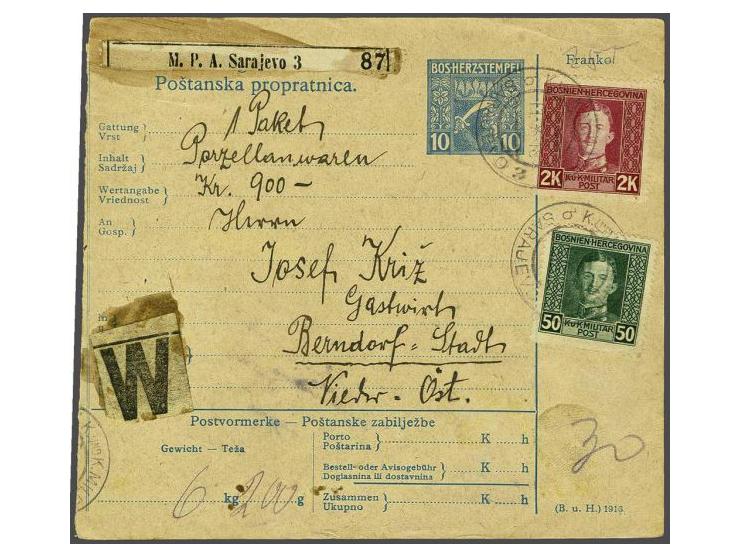 M. P. A. Sarajevo 3 87
Poštanska propratnica.
BOSHERZSTEMPEL
10 10
Franko
BOSNIEN-HERCEGOVINA
2K 2K
K.u.K. MILITÄR
POST
Gattung
Vrst
1 Paket
Inhalt
Sadržaj
Porzellanwaren
Wertangabe
Vriednost
Kr. 900 –
An
Gosp.
Herrn
Josef Križ
Gastwirt
Berndorf-Stadt
Nieder-Öst.
SARAJEVO
BOSNIEN-HERCEGOVINA
50 50
K.u.K. MILITÄR
POST
W
Postvormerke — Poštanske zabilježbe
Gewicht — Teža
6 kg 200 g
Porto
Poštarina
K h
Bestell- oder Avisogebühr
Doglasnina ili dostavnina
K h
Zusammen
Ukupno
K h
30
(B. u. H.) 1916.